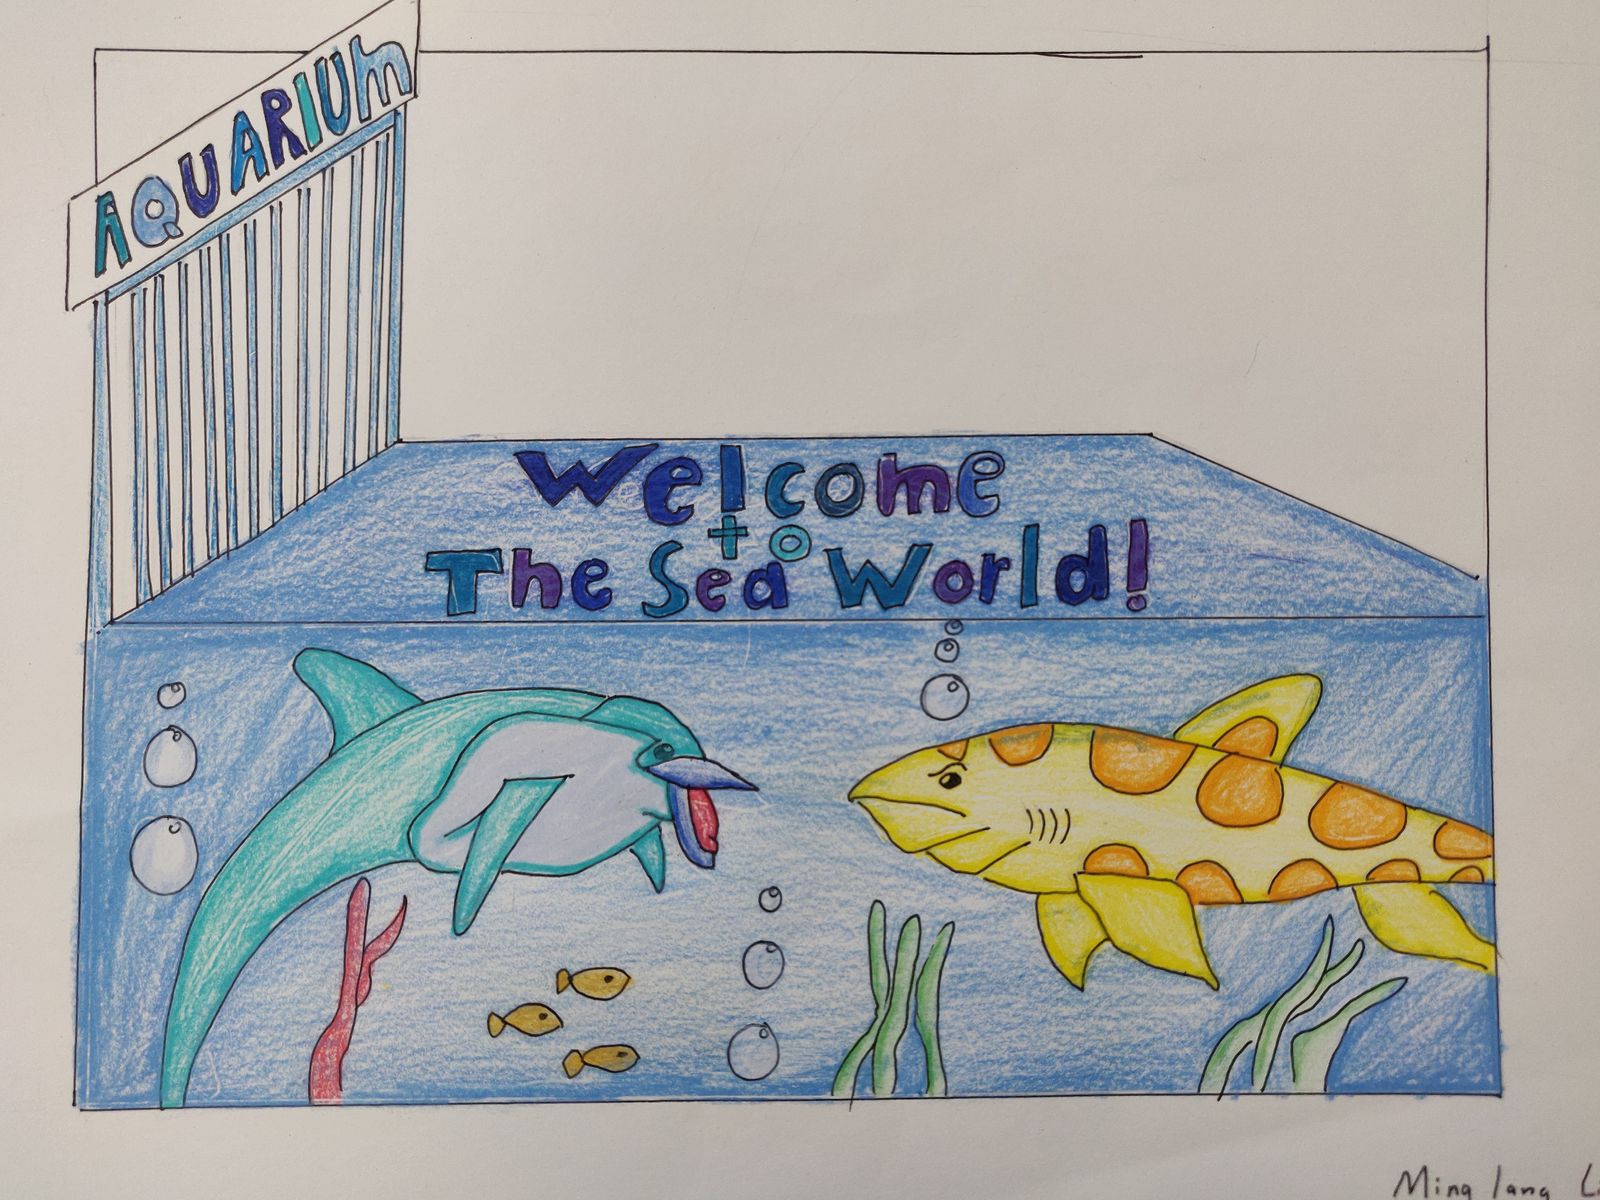 AQUARIUm
Welcome
to
The Sea World!
Ming lang